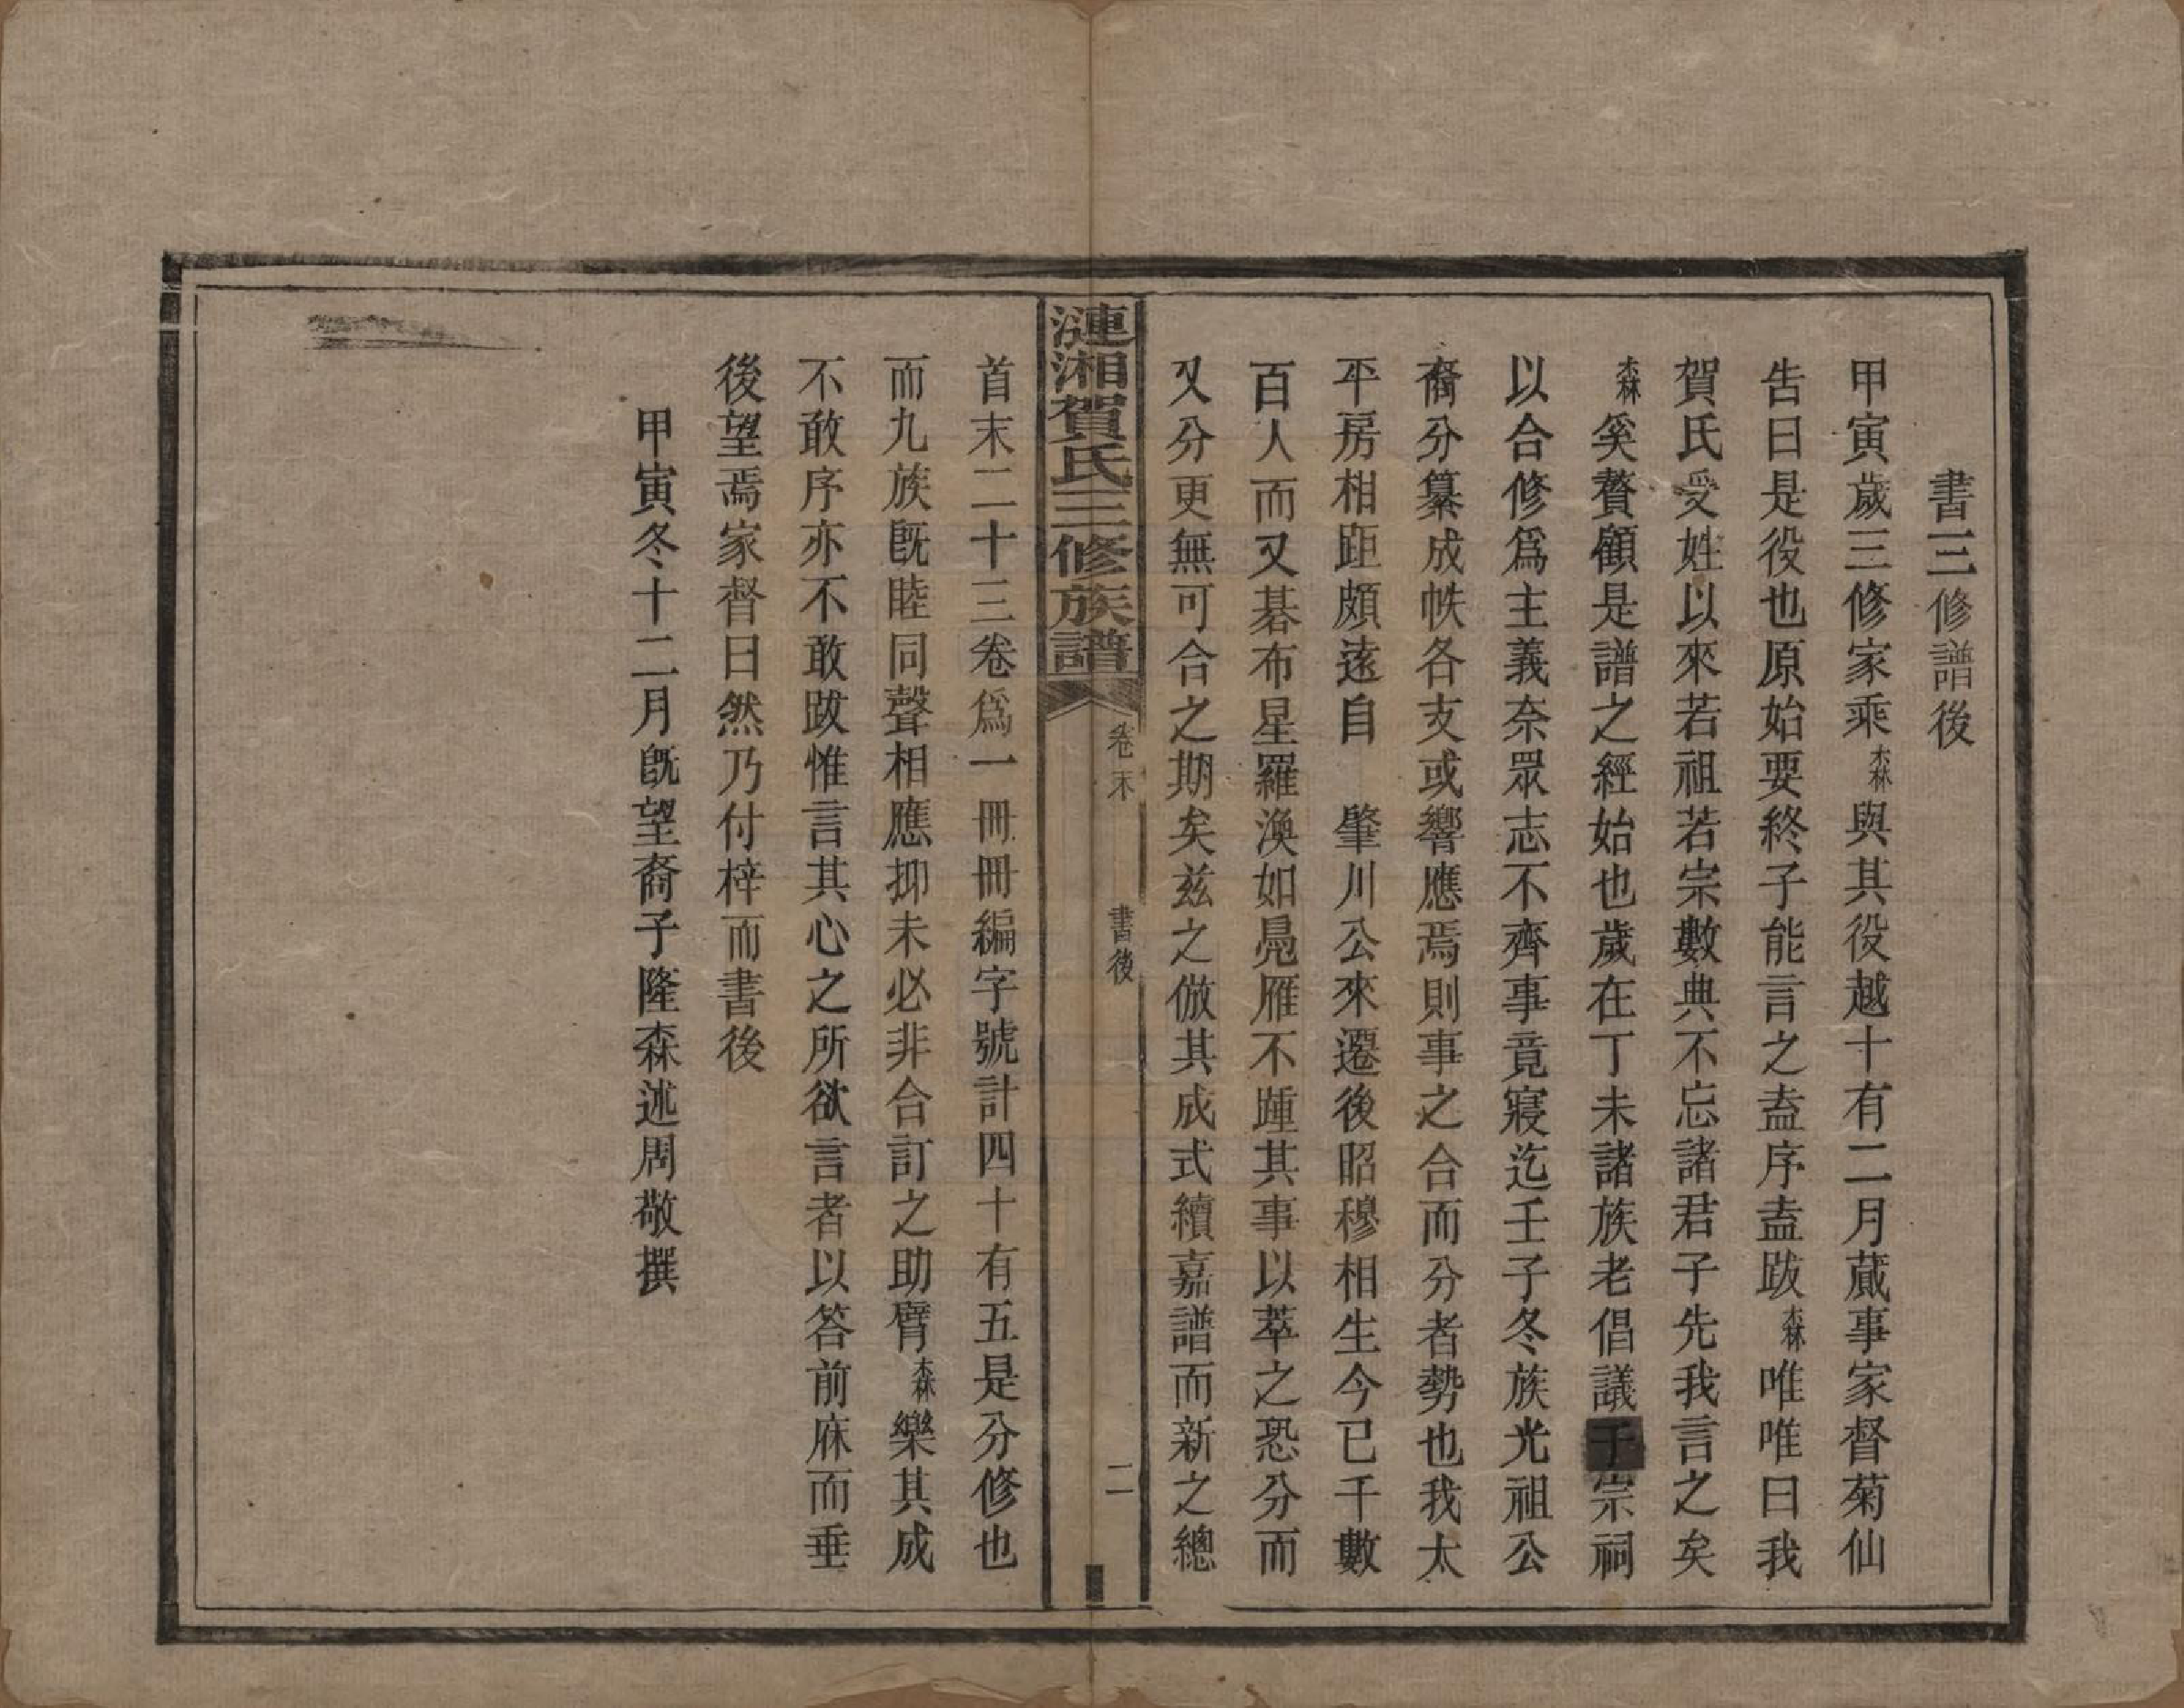 書三修譜後
甲寅歲三修家乘森與其役越十有二月蕆事家督菊仙
告曰是役也原始要終子能言之盍序盍跋森唯唯曰我
賀氏受姓以來若祖若宗數典不忘諸君子先我言之矣
森奚贅顧是譜之經始也歲在丁未諸族老倡議于宗祠
以合修爲主義奈眾志不齊事竟寢迄壬子冬族光祖公
裔分纂成帙各支或響應焉則事之合而分者勢也我太
平房相距頗遠自　肇川公來遷後昭穆相生今已千數
百人而又碁布星羅渙如鳧雁不踵其事以萃之恐分而
又分更無可合之期矣兹之倣其成式續嘉譜而新之總
漣湘賀氏三修族譜
卷末
書後
二
首末二十三卷爲一冊冊編字號計四十有五是分修也
而九族既睦同聲相應抑未必非合訂之助臂森樂其成
不敢序亦不敢跋惟言其心之所欲言者以答前庥而垂
後望焉家督曰然乃付梓而書後
甲寅冬十二月既望裔子隆森述周敬撰